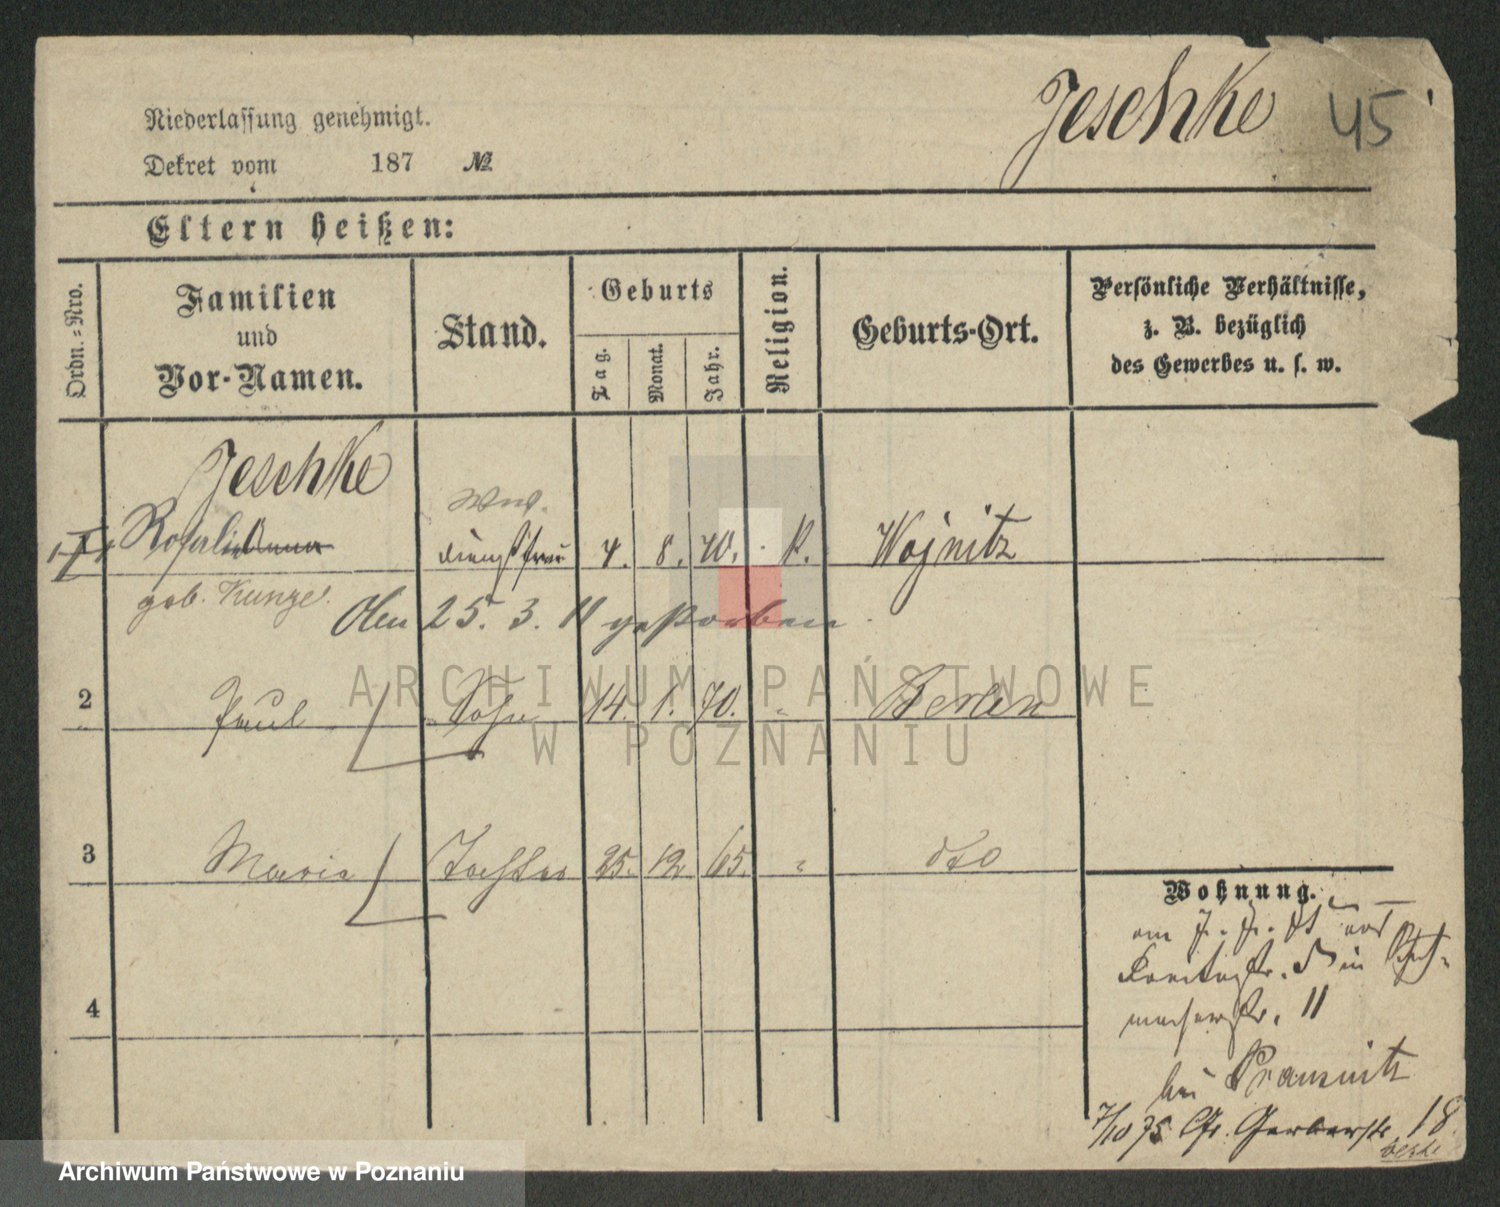 Jeschke 45
Niederlassung genehmigt.
Dekret vom 187 №
Eltern heißen:
Ordn.=Nro.
Familien
und
Vor-Namen.
Stand.
Geburts
Tag.
Monat.
Jahr.
Religion.
Geburts-Ort.
Persönliche Verhältnisse,
z. B. bezüglich
des Gewerbes u. s. w.
Jeschke
Wwe.
Rosalie 4. 8. 40. k. Wojnitz
geb. Kunze.
25. 3. 11 gestorben
2 Paul Sohn 14. 1. 70. " Berlin
3 Maria Tochter 25. 12 65. " dto
4
Wohnung.
am
in
macherstr. 11
bei Pramnitz
7/10 75 Gr. Gerberstr. 18
ARCHIWUM PAŃSTWOWE
W POZNANIU
Archiwum Państwowe w Poznaniu